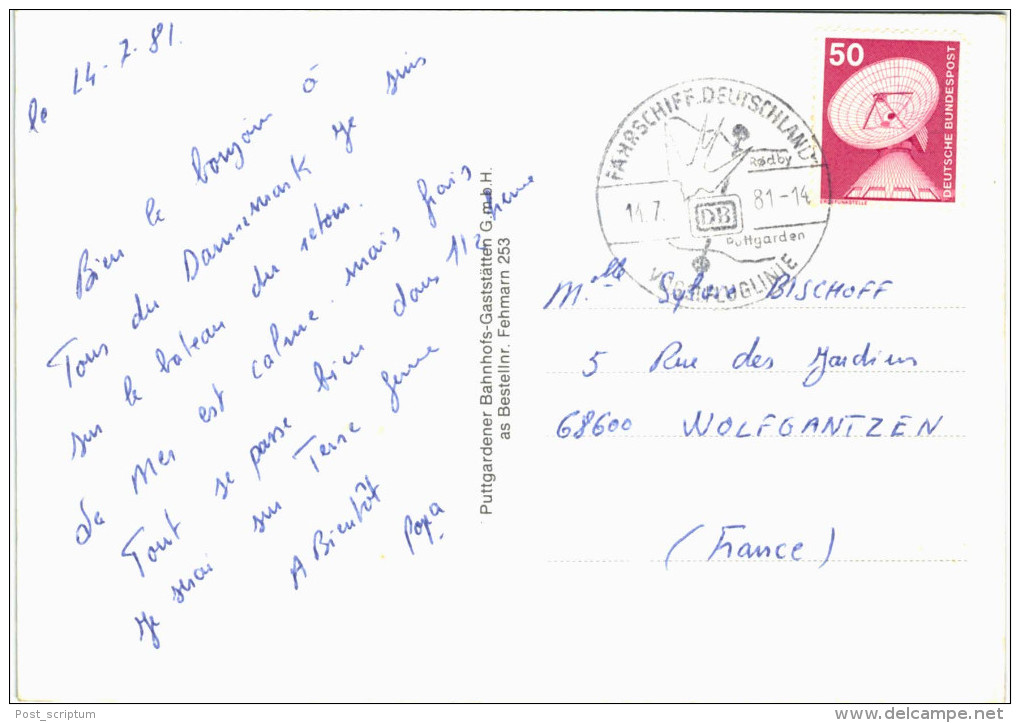 le 14-7-81.
Bien le bonjour à
Tous du Dannemark je suis
sur le bateau du retour.
La Mer est calme. mais frais
Tout se passe bien dans 1 1/2 heure
je serai sur Terre ferme
A Bientôt
Papa
Puttgardener Bahnhofs-Gaststätten G.m.b.H.
as Bestellnr. Fehmarn 253
FÄHRSCHIFF DEUTSCHLAND
Rødby
14.7. DB 81-14
Puttgarden
VOGELFLUGLINIE
50
DEUTSCHE BUNDESPOST
ERDFUNKSTELLE
M.elle Sylvie BISCHOFF
5 Rue des Jardins
68600 WOLFGANTZEN
(France)
Post_scriptum
www.delcampe.net